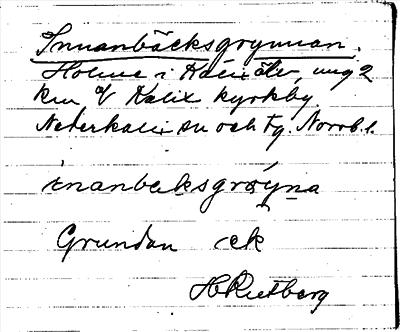 Innanbäcksgrynnan.
Holme i Kalix älv, ung 2
km V Kalix kyrkby.
Nederkalix sn och tg. Norrb. l.
inanbeksgrøyna
Grundan ek
H Rietberg